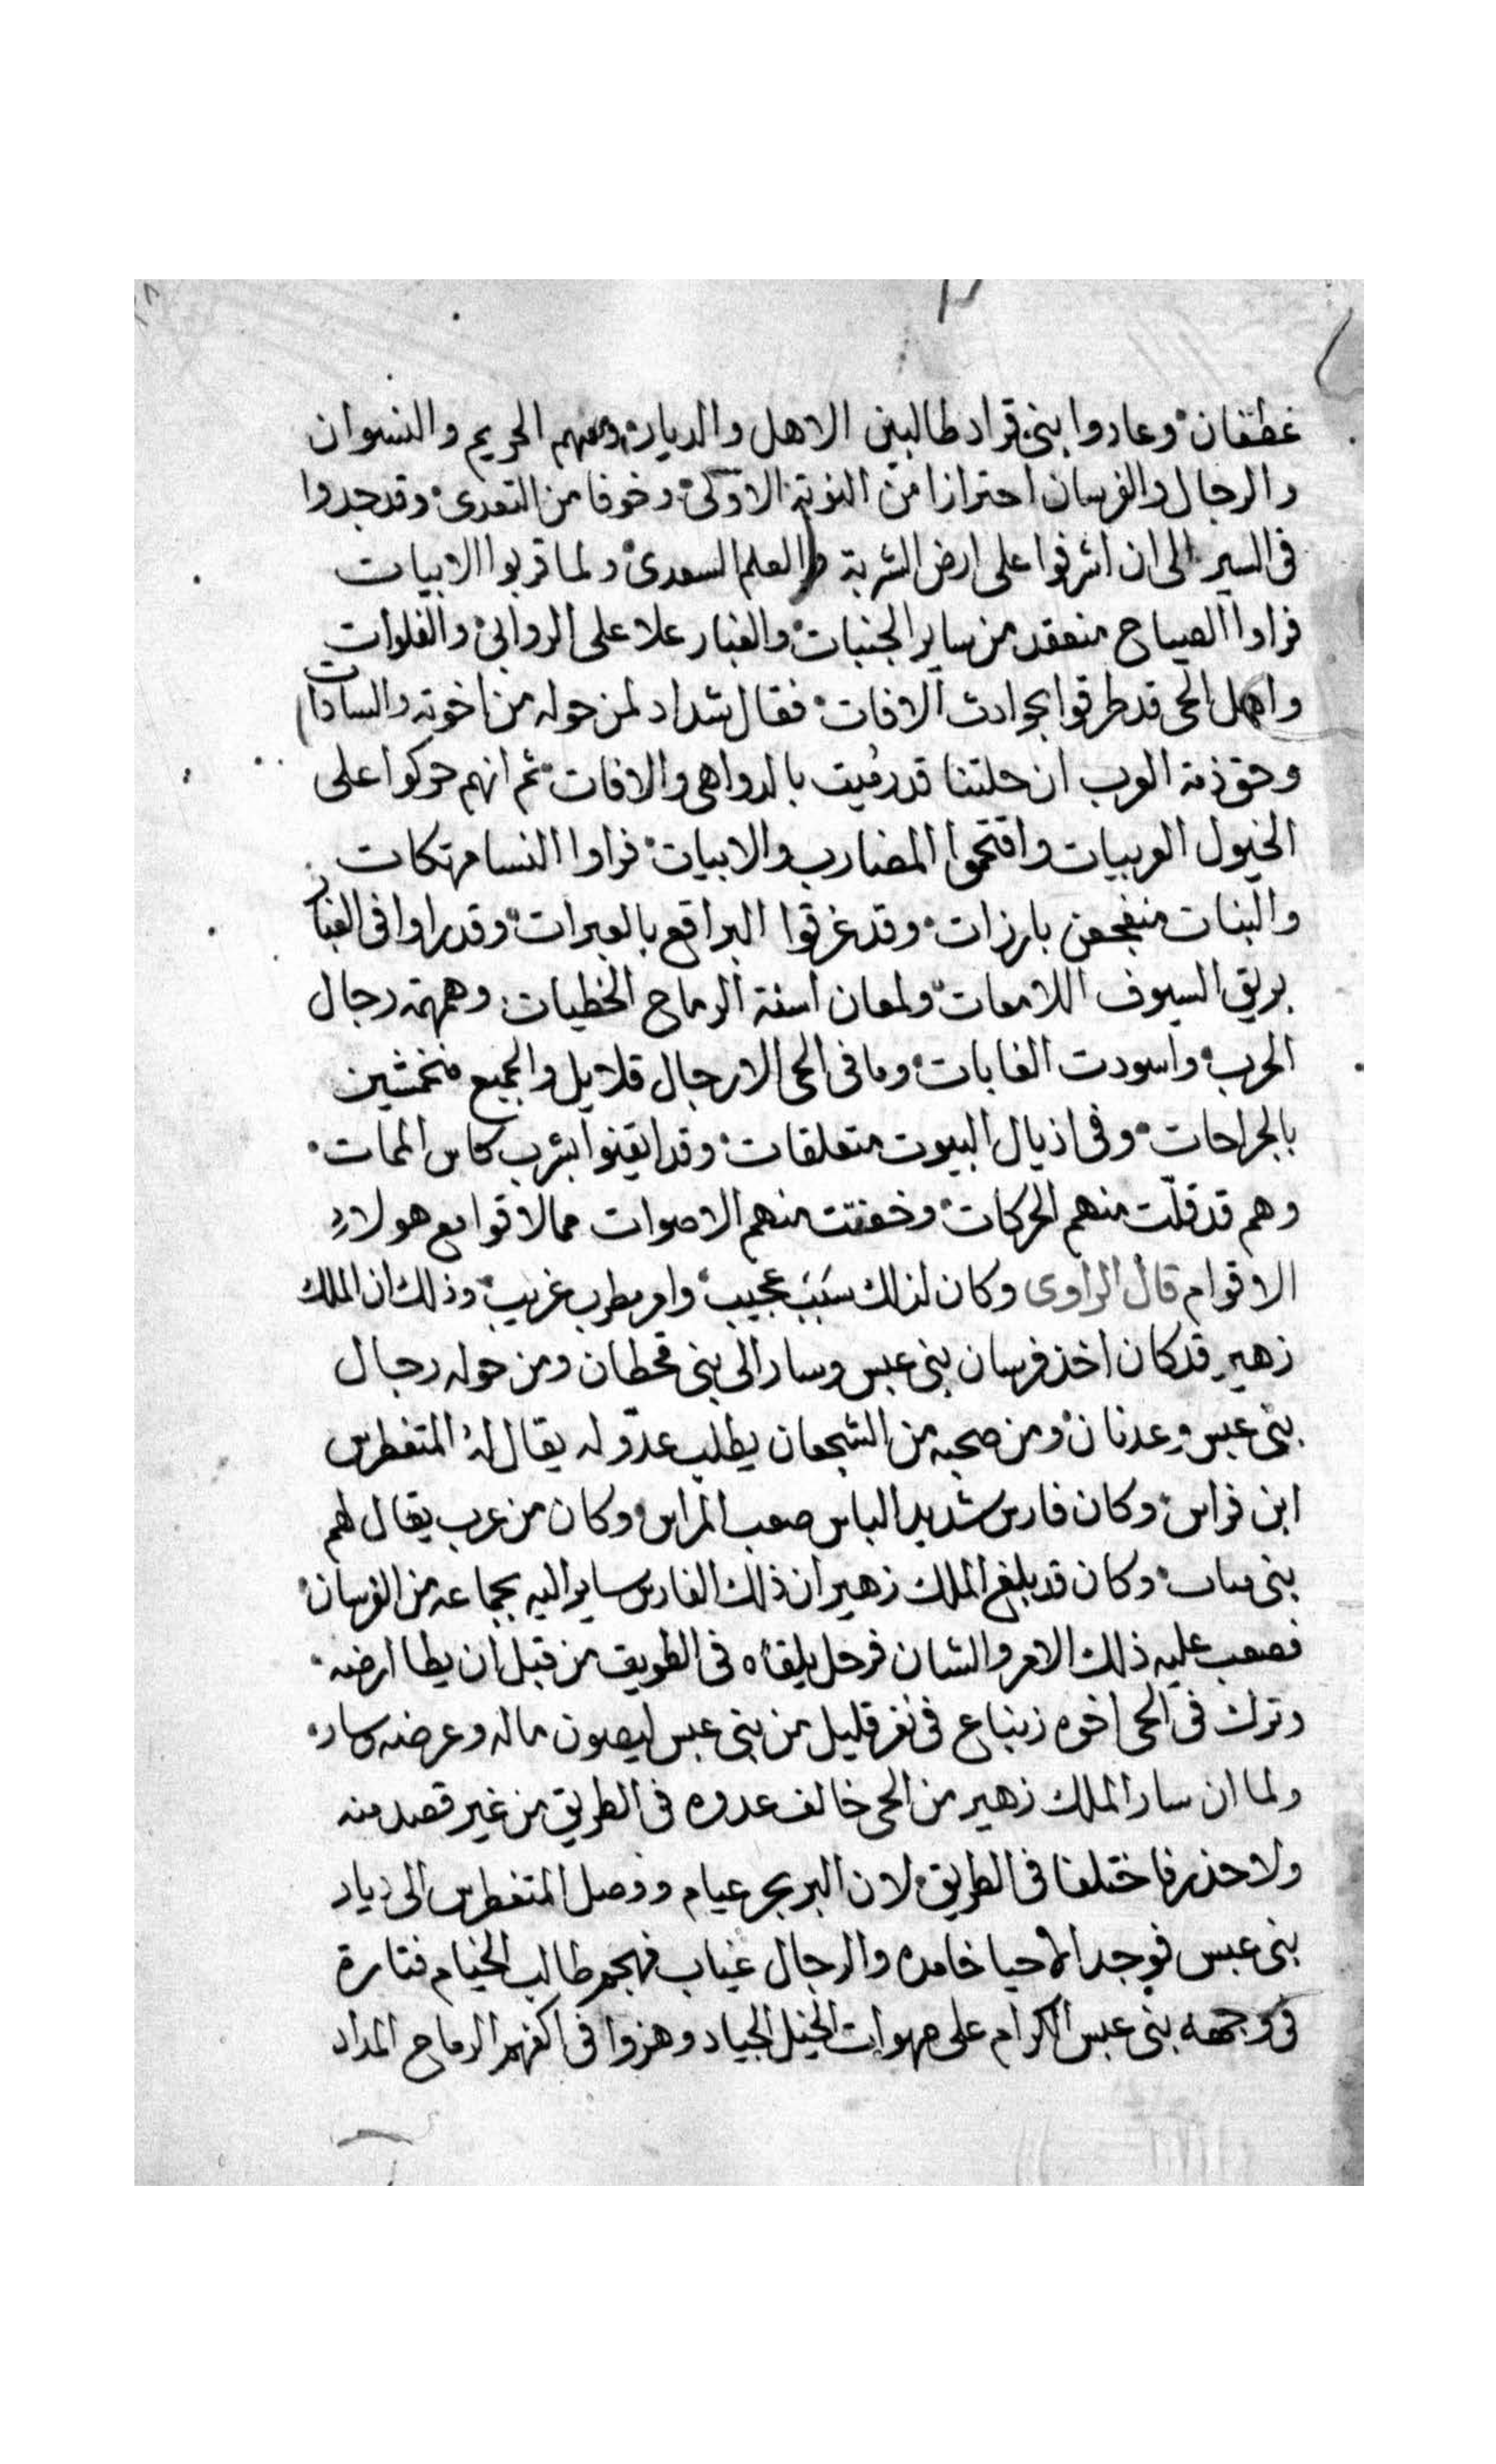 غطفان وعادوا بنى قراد طالبين الاهل والديار ومعهم الحريم والنسوان
والرجال والفرسان احترازا من النوبة الاولى وخوفا من التعدى وقد جدوا
فى السير الى ان اشرفوا على ارض الشربة والعلم السعدى ولما قربوا الابيات
فراوا الصياح منعقد من ساير الجنبات والغبار علا على الروابى والفلوات
واهل الحى قد طرقوا بحوادث الافات فقال شداد لمن حوله من اخوته والسادات
وحق ذمة العرب ان حلتنا قد رميت بالدواهى والافات ثم انهم حركوا على
الخيول العربيات واقتحموا المضارب والابيات فراوا النسا مهتكات
والبنات منفجعن بارزات وقد غرقوا البراقع بالعبرات وقد راوا فى الغبار
بريق السيوف اللامعات ولمعان اسنة الرماح الخطيات وهمهمة رجال
الحرب واسودت الغابات وما فى الحى الا رجال قلايل والجميع منخمشين
بالجراحات وفى اذيال البيوت متعلقات وقد ايقنوا بشرب كاس الممات
وهم قد قلّت منهم الحركات وخفتت منهم الاصوات مما لاقوا مع هولاء
الاقوام قال الراوى وكان لذلك سَبَبَ عجيب وامر مطرب غريب وذلك ان الملك
زهير قد كان اخذ فرسان بنى عبس وسار الى بنى قحطان ومن حوله رجال
بنى عبس وعدنان ومن صحبه من الشجعان يطلب عدّو له يقال لهُ المتغطرس
ابن فراس وكان فارس شديد الباس صعب المراس وكان من عرب يقال لهم
بنى وكان قد بلغ الملك زهير ان ذلك الفارس ساير اليه بجماعه من الفرسان
فصعب عليه ذلك الامر والشان فرحل يلقاه فى الطريق من قبل ان يطا ارضه
وترك فى الحى اخوه زنباع فى نفر قليل من بنى عبس ليصون ماله وعرضه وسار
ولما ان سار الملك زهير من الحى خالف عدوه فى الطريق من غير قصد منه
ولا حذر فاختلفا فى الطريق لان البر بحر عيام ووصل المتغطرس الى دياد
بنى عبس فوجد الاحيا خامده والرجال غياب فهجم طالب الخيام فتارة
فى وجهه بنى عبس الكرام على صهوات الخيل الجياد وهزوا فى اكفهم الرماح المداد